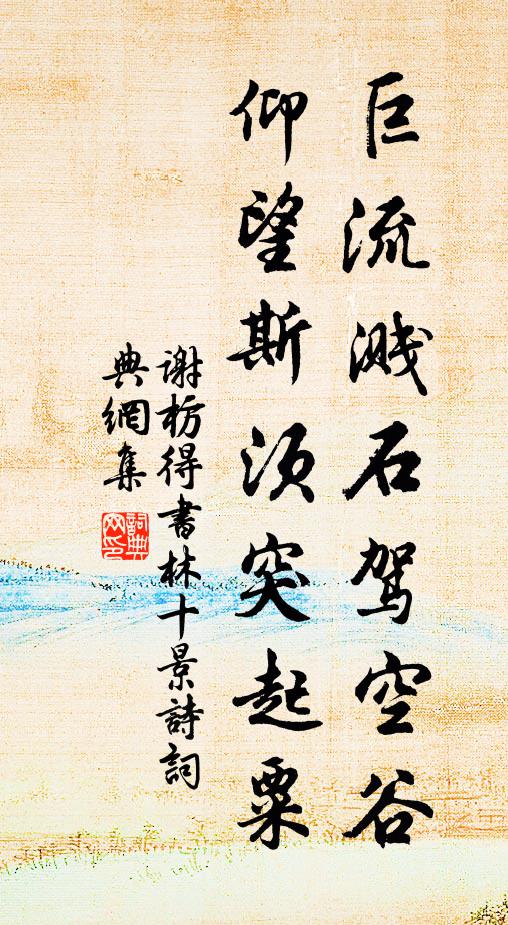 巨流溅石驾空谷
仰望斯须突起粟
谢枋得书林十景詩詞
典網集
詞典網印